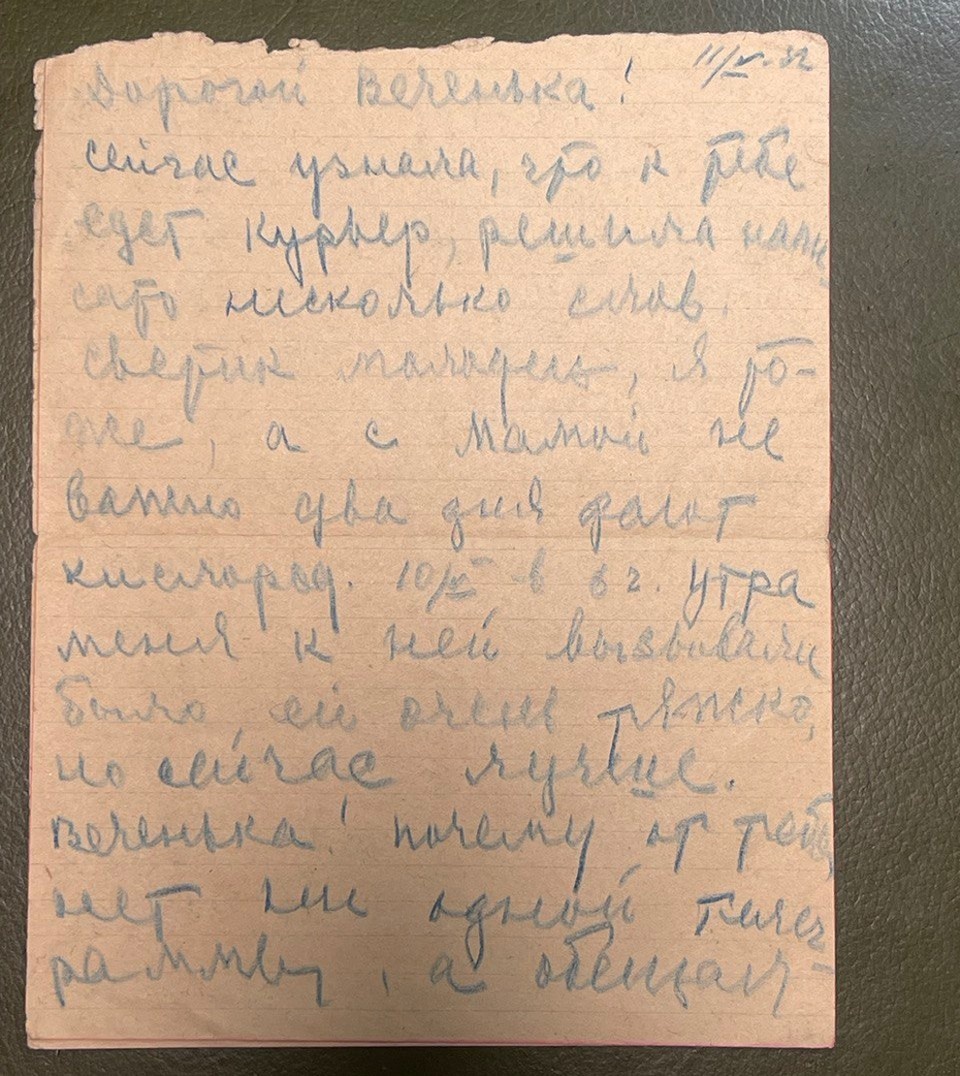 11/V-32
Дорогой Веченька!
сейчас узнала, что к тебе
едет курьер, решила напи
сать несколько слов.
Светик молодец, я то-
же, а с мамой не
важно два дня дают
кислород. 10/V в 6 ч. утра
меня к ней вызывали
было ей очень тяжко,
но сейчас лучше.
Веченька! почему от тебя
нет ни одной телег
раммы, а обещал-